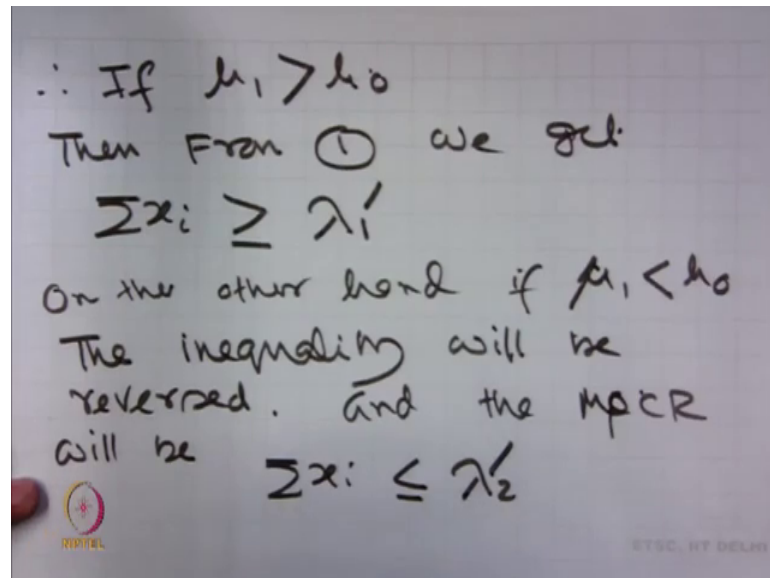 ∴ If μ₁ > μ₀
Then From ① we get
Σxᵢ ≥ λ₁′
On the other hand if μ₁ < μ₀
The inequality will be
reversed. and the MPCR
will be Σxᵢ ≤ λ₂′
NPTEL
ETSC, IIT DELHI